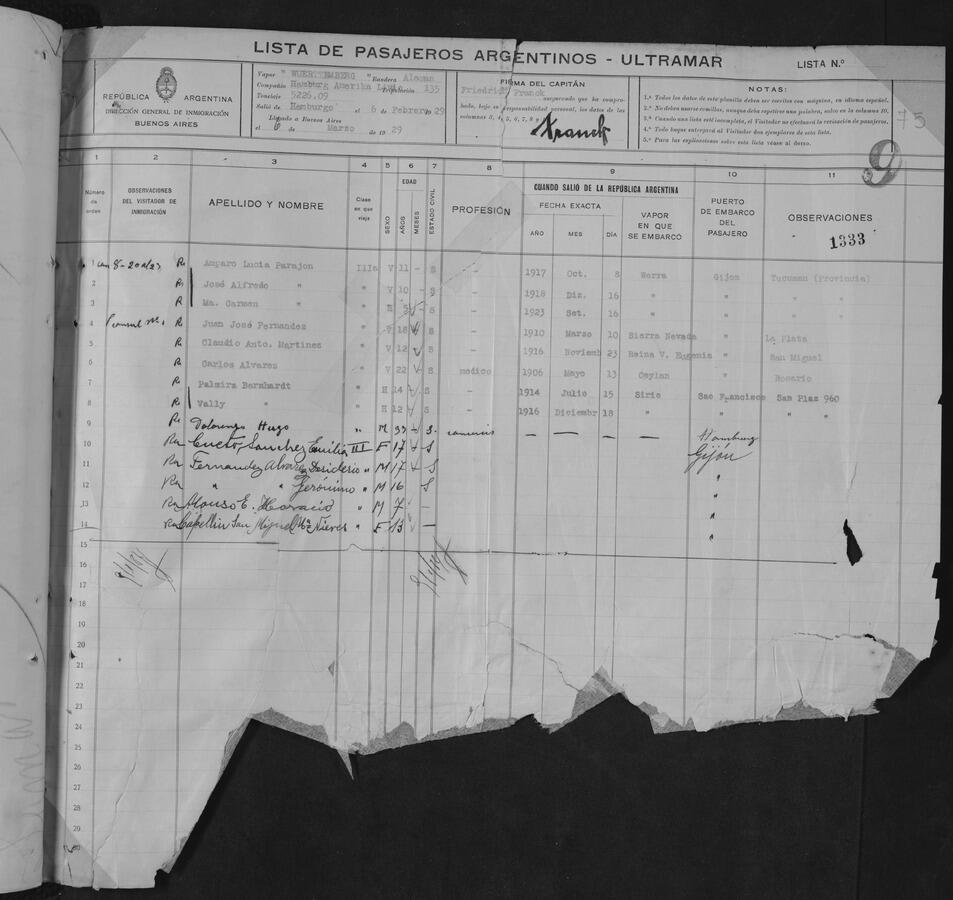 LISTA DE PASAJEROS ARGENTINOS - ULTRAMAR
LISTA N.º
REPÚBLICA ARGENTINA
DIRECCIÓN GENERAL DE INMIGRACIÓN
BUENOS AIRES
Vapor "WUERTTEMBERG" Bandera Alemana
Compañía Hamburg Amerika Linie 135
Tonelaje 5226.09
Salió de Hamburgo el 6 de Febrero 29
Llegado a Buenos Aires
el 6 de Marzo de 1929
FIRMA DEL CAPITÁN
Friedrich Franck
Franck
NOTAS:
1.ª Todos los datos de esta planilla deben ser escritos con máquina, en idioma español.
2.ª No deben usarse comillas, aunque deba repetirse una palabra, salvo en la columna 10.
3.ª Cuando una lista esté incompleta, el Visitador no efectuará la revisación de pasajeros.
4.ª Todo buque entregará al Visitador dos ejemplares de esta lista.
5.ª Para las explicaciones sobre esta lista véase al dorso.
75
9
1 2 3 4 5 6 7 8 9 10 11
Número de orden
OBSERVACIONES DEL VISITADOR DE INMIGRACIÓN
APELLIDO Y NOMBRE
Clase en que viaja
SEXO
EDAD
AÑOS
MESES
ESTADO CIVIL
PROFESIÓN
CUANDO SALIÓ DE LA REPÚBLICA ARGENTINA
FECHA EXACTA
AÑO MES DÍA
VAPOR EN QUE SE EMBARCO
PUERTO DE EMBARCO DEL PASAJERO
OBSERVACIONES
1333
1 Amparo Lucia Parajon IIIa V 11 - S - 1917 Oct. 8 Werra Gijon Tucuman (Provincia)
2 José Alfredo " " V 10 - S - 1918 Diz. 16 " " " "
3 Ma. Carmen " " H 5 S - 1923 Set. 16 " " " "
4 Juan José Fernandez " V 18 S - 1910 Marzo 10 Sierra Nevada " La Plata
5 Claudio Anto. Martinez " V 12 S - 1916 Noviemb 23 Reina V. Eugenia " San Miguel
6 Carlos Alvares " V 22 S medico 1906 Mayo 13 Ceylan " Rosario
7 Palmira Bernhardt " H 14 S - 1914 Julio 15 Sirio Sao Francisco San Plaz 960
8 Vally " " H 12 S - 1916 Diciembr 18 " " "
9 Hugo " M 33 S - - - - Hamburg
10 Cueto, Sanchez Emilia III F 17 S Gijón
11 Fernandez Alvarez Desiderio " M 17 S "
12 " " Gerónimo " M 16 S "
13 Alonso E. Horacio " M 7 - "
14 Capellin San Miguel Ma Nieves " F 13 - "
15
16
17
18
19
20
21
22
23
24
25
26
27
28
29
30